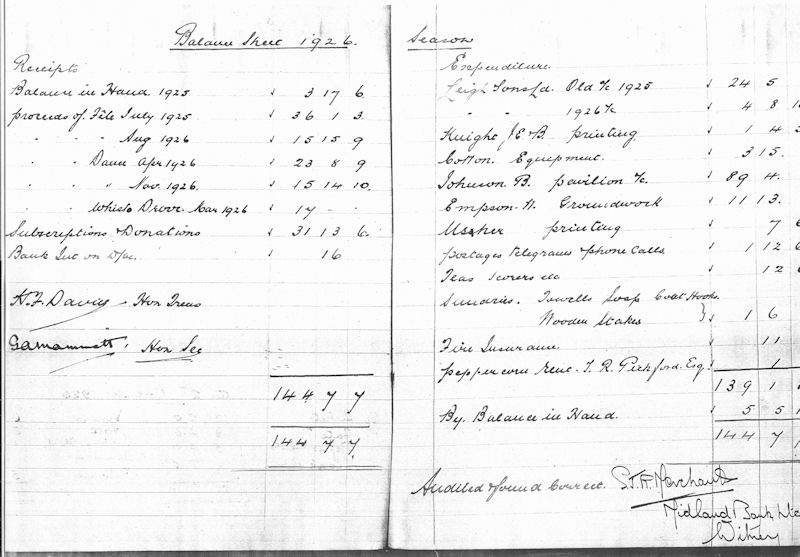 Balance Sheet 1926.
Receipts
Balance in Hand 1925 3 17 6
proceeds of Fête July 1925 36 1 3.
" " Aug 1926 15 15 9
" " Dance Apr 1926 23 8 9
" " " Nov. 1926. 15 14 10.
" " Whist Drive. Mar 1926 17 - -
Subscriptions & Donations 31 13 6.
Bank Int on D/ac. 16
H. F. Davies Hon Treas
Hon Sec
144 7 7
144 7 7.
Season
Expenditure.
Leigh Sons Ld. Old a/c 1925 24 5
" " 1926 a/c 4 8
Knight J E B printing 1 4
Cotton. Equipment. 3 15.
Johnson B. pavilion a/c. 89 4.
Empson. H. Groundwork 11 13.
Ussher printing 7
postages telegrams & phone calls 1 12
Teas scorers etc 12
Sundries. Towells Soap Coat Hooks.
Wooden Stakes } 1 6
Fire Insurance 11
peppercorn Rent. T. R. Pickford. Esq. 1
139 1
By Balance in Hand. 5 5
144 7
Audited & found Correct. S.J.H. Marchant
Midland Bank
Witney